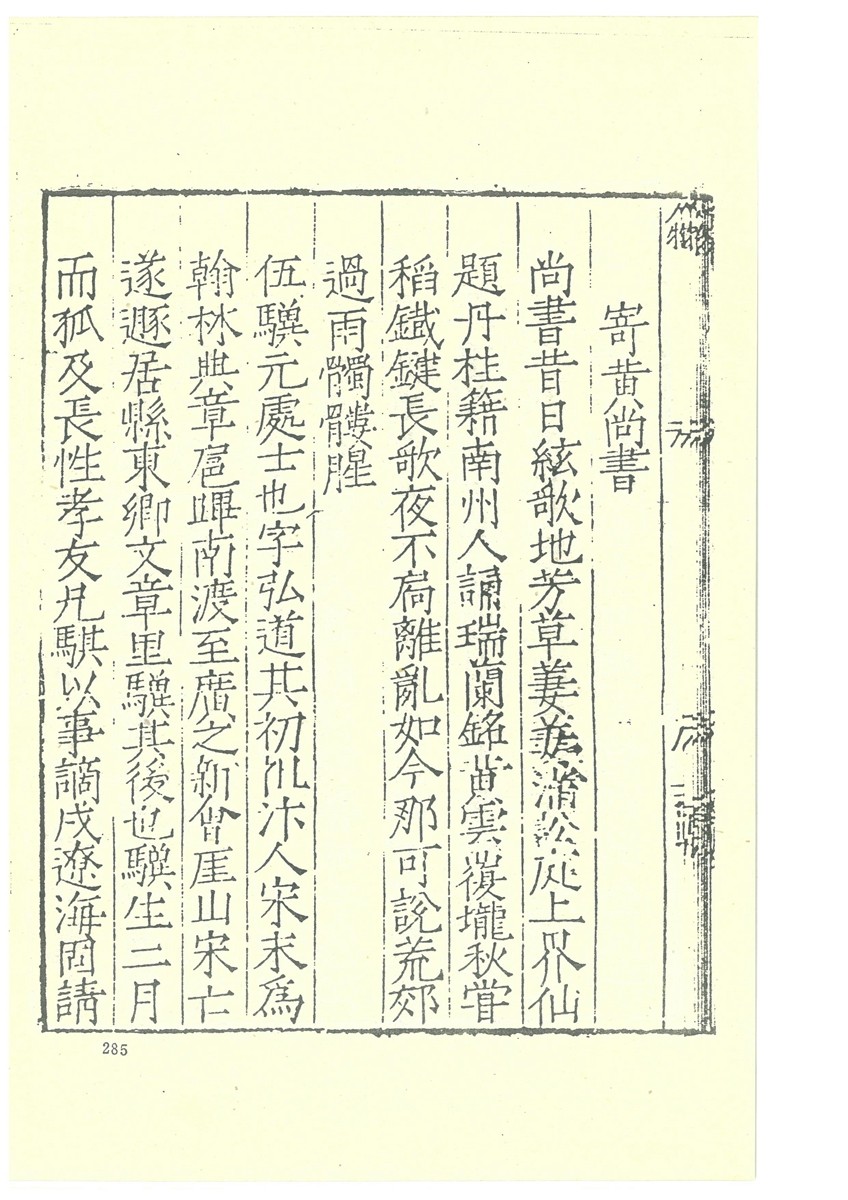 寄黄尚書
尚書昔日絃歌地芳草萋萋滿訟庭上界仙
題丹桂籍南州人誦瑞蘭銘黄雲覆壠秋甞
稻鐵鍵長歌夜不扃離亂如今那可説荒郊
過雨髑髏腥
伍驥元處士也字弘道其初汴人宋末爲
翰林典章扈蹕南渡至廣之新會厓山宋亡
遂遯居縣東鄉文章里驥其後也驥生二月
而孤及長性孝友兄騏以事謫戍遼海固請
285